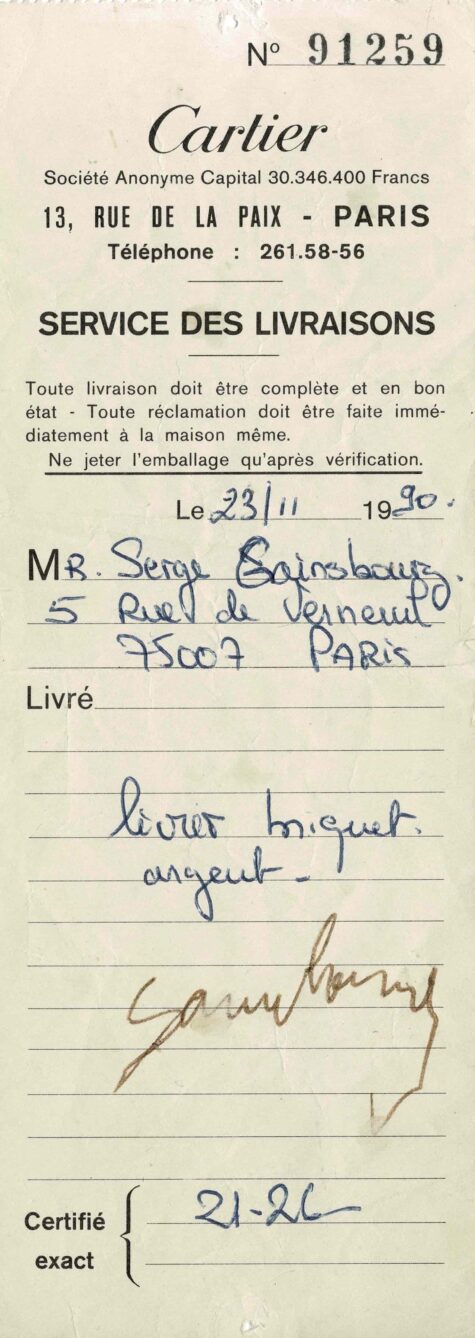 Nº 91259
Cartier
Société Anonyme Capital 30.346.400 Francs
13, RUE DE LA PAIX - PARIS
Téléphone : 261.58-56
SERVICE DES LIVRAISONS
Toute livraison doit être complète et en bon
état - Toute réclamation doit être faite immé-
diatement à la maison même.
Ne jeter l'emballage qu'après vérification.
Le 23/11 1990.
MR. Serge Gainsbourg.
5 Rue de Verneuil
75007 PARIS
Livré
livrer briquet.
argent -
Gainsbourg
Certifié
exact